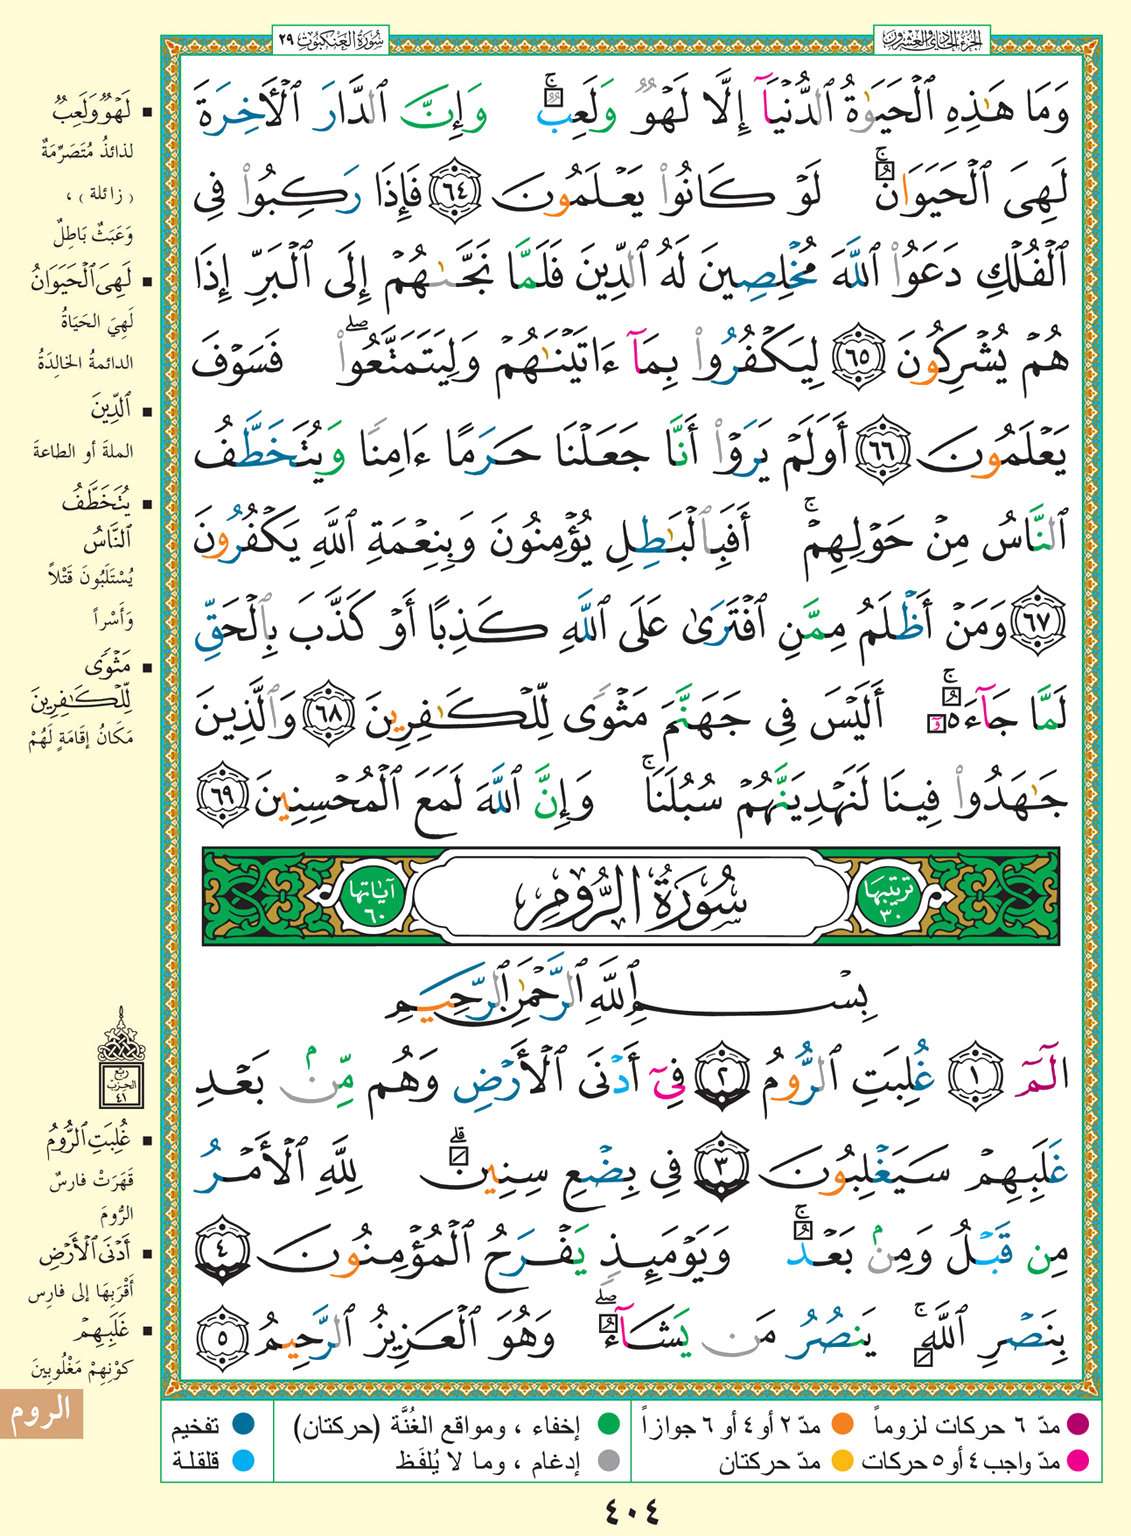 سُورَةُ العَنكَبُوتِ ٢٩
الجُزءُ الحَادِي وَالعِشرُونَ
وَمَا هَـٰذِهِ ٱلْحَيَوٰةُ ٱلدُّنْيَآ إِلَّا لَهْوٌ وَلَعِبٌ ۚ وَإِنَّ ٱلدَّارَ ٱلْأَخِرَةَ
لَهِىَ ٱلْحَيَوَانُ ۚ لَوْ كَانُوا۟ يَعْلَمُونَ ٦٤ فَإِذَا رَكِبُوا۟ فِى
ٱلْفُلْكِ دَعَوُا۟ ٱللَّهَ مُخْلِصِينَ لَهُ ٱلدِّينَ فَلَمَّا نَجَّىٰهُمْ إِلَى ٱلْبَرِّ إِذَا
هُمْ يُشْرِكُونَ ٦٥ لِيَكْفُرُوا۟ بِمَآ ءَاتَيْنَـٰهُمْ وَلِيَتَمَتَّعُوا۟ ۖ فَسَوْفَ
يَعْلَمُونَ ٦٦ أَوَلَمْ يَرَوْا۟ أَنَّا جَعَلْنَا حَرَمًا ءَامِنًا وَيُتَخَطَّفُ
ٱلنَّاسُ مِنْ حَوْلِهِمْ ۚ أَفَبِٱلْبَـٰطِلِ يُؤْمِنُونَ وَبِنِعْمَةِ ٱللَّهِ يَكْفُرُونَ
٦٧ وَمَنْ أَظْلَمُ مِمَّنِ ٱفْتَرَىٰ عَلَى ٱللَّهِ كَذِبًا أَوْ كَذَّبَ بِٱلْحَقِّ
لَمَّا جَآءَهُۥٓ ۚ أَلَيْسَ فِى جَهَنَّمَ مَثْوًى لِّلْكَـٰفِرِينَ ٦٨ وَٱلَّذِينَ
جَـٰهَدُوا۟ فِينَا لَنَهْدِيَنَّهُمْ سُبُلَنَا ۚ وَإِنَّ ٱللَّهَ لَمَعَ ٱلْمُحْسِنِينَ ٦٩
ترتيبها ٣٠
سُورَةُ الرُّومِ
آياتها ٦٠
بِسْمِ ٱللَّهِ ٱلرَّحْمَـٰنِ ٱلرَّحِيمِ
الٓمٓ ١ غُلِبَتِ ٱلرُّومُ ٢ فِىٓ أَدْنَى ٱلْأَرْضِ وَهُم مِّنۢ بَعْدِ
غَلَبِهِمْ سَيَغْلِبُونَ ٣ فِى بِضْعِ سِنِينَ ۗ لِلَّهِ ٱلْأَمْرُ
مِن قَبْلُ وَمِنۢ بَعْدُ ۚ وَيَوْمَئِذٍ يَفْرَحُ ٱلْمُؤْمِنُونَ ٤
بِنَصْرِ ٱللَّهِ ۚ يَنصُرُ مَن يَشَآءُ ۖ وَهُوَ ٱلْعَزِيزُ ٱلرَّحِيمُ ٥
لَهْوٌ وَلَعِبٌ
لذائذُ مُتَصَرِّمَةٌ
(زائلة)،
وَعَبَثٌ بَاطِلٌ
لَهِىَ ٱلْحَيَوَانُ
لَهِيَ الحَيَاةُ
الدائمةُ الخالِدَةُ
ٱلدِّينَ
الملةَ أو الطاعةَ
يُتَخَطَّفُ
ٱلنَّاسُ
يُسْتَلَبُونَ قَتْلاً
وَأَسْراً
مَثْوًى
لِّلْكَـٰفِرِينَ
مَكَانُ إقَامَةٍ لَهُمْ
ربع
الحزب
٤١
غُلِبَتِ ٱلرُّومُ
قَهَرَتْ فارسٌ
الرُّومَ
أَدْنَى ٱلْأَرْضِ
أَقْرَبِهَا إلى فارِس
غَلَبِهِمْ
كوْنِهِمْ مَغْلُوبِينَ
الروم
مدّ ٦ حركات لزوماً
مدّ ٢ أو ٤ أو ٦ جوازاً
إخفاء ، ومواقع الغُنَّة (حركتان)
تفخيم
مدّ واجب ٤ أو ٥ حركات
مدّ حركتان
إدغام ، وما لا يُلفَظ
قلقلة
٤٠٤